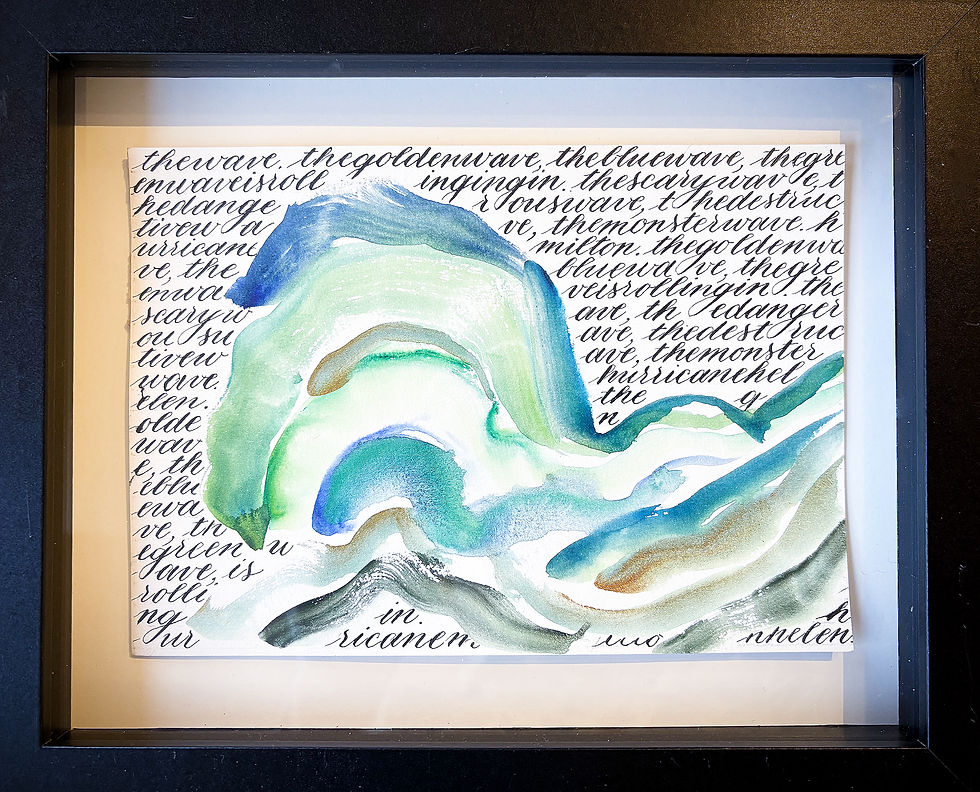 thewave, thegoldenwave, thebluewave, thegre
enwaveisroll ingingin. thescarywav e, t
hedange rouswave, t hedestruc
tivew a ve, themonsterwave. h
urricane milton. thegoldenwa
ve, the bluewa ve, thegre
enwa veisrollingin. the
scaryw ave, th edanger
ou su ave, thedest ruc
tivew ave, themonster
wave. hurricanehel
elen. the g
olde n
wav
e, th
eblu
ewa
ve, th
egreen w
ave, is
rolli
ng in. h
ur ricanem. uno nnelen.